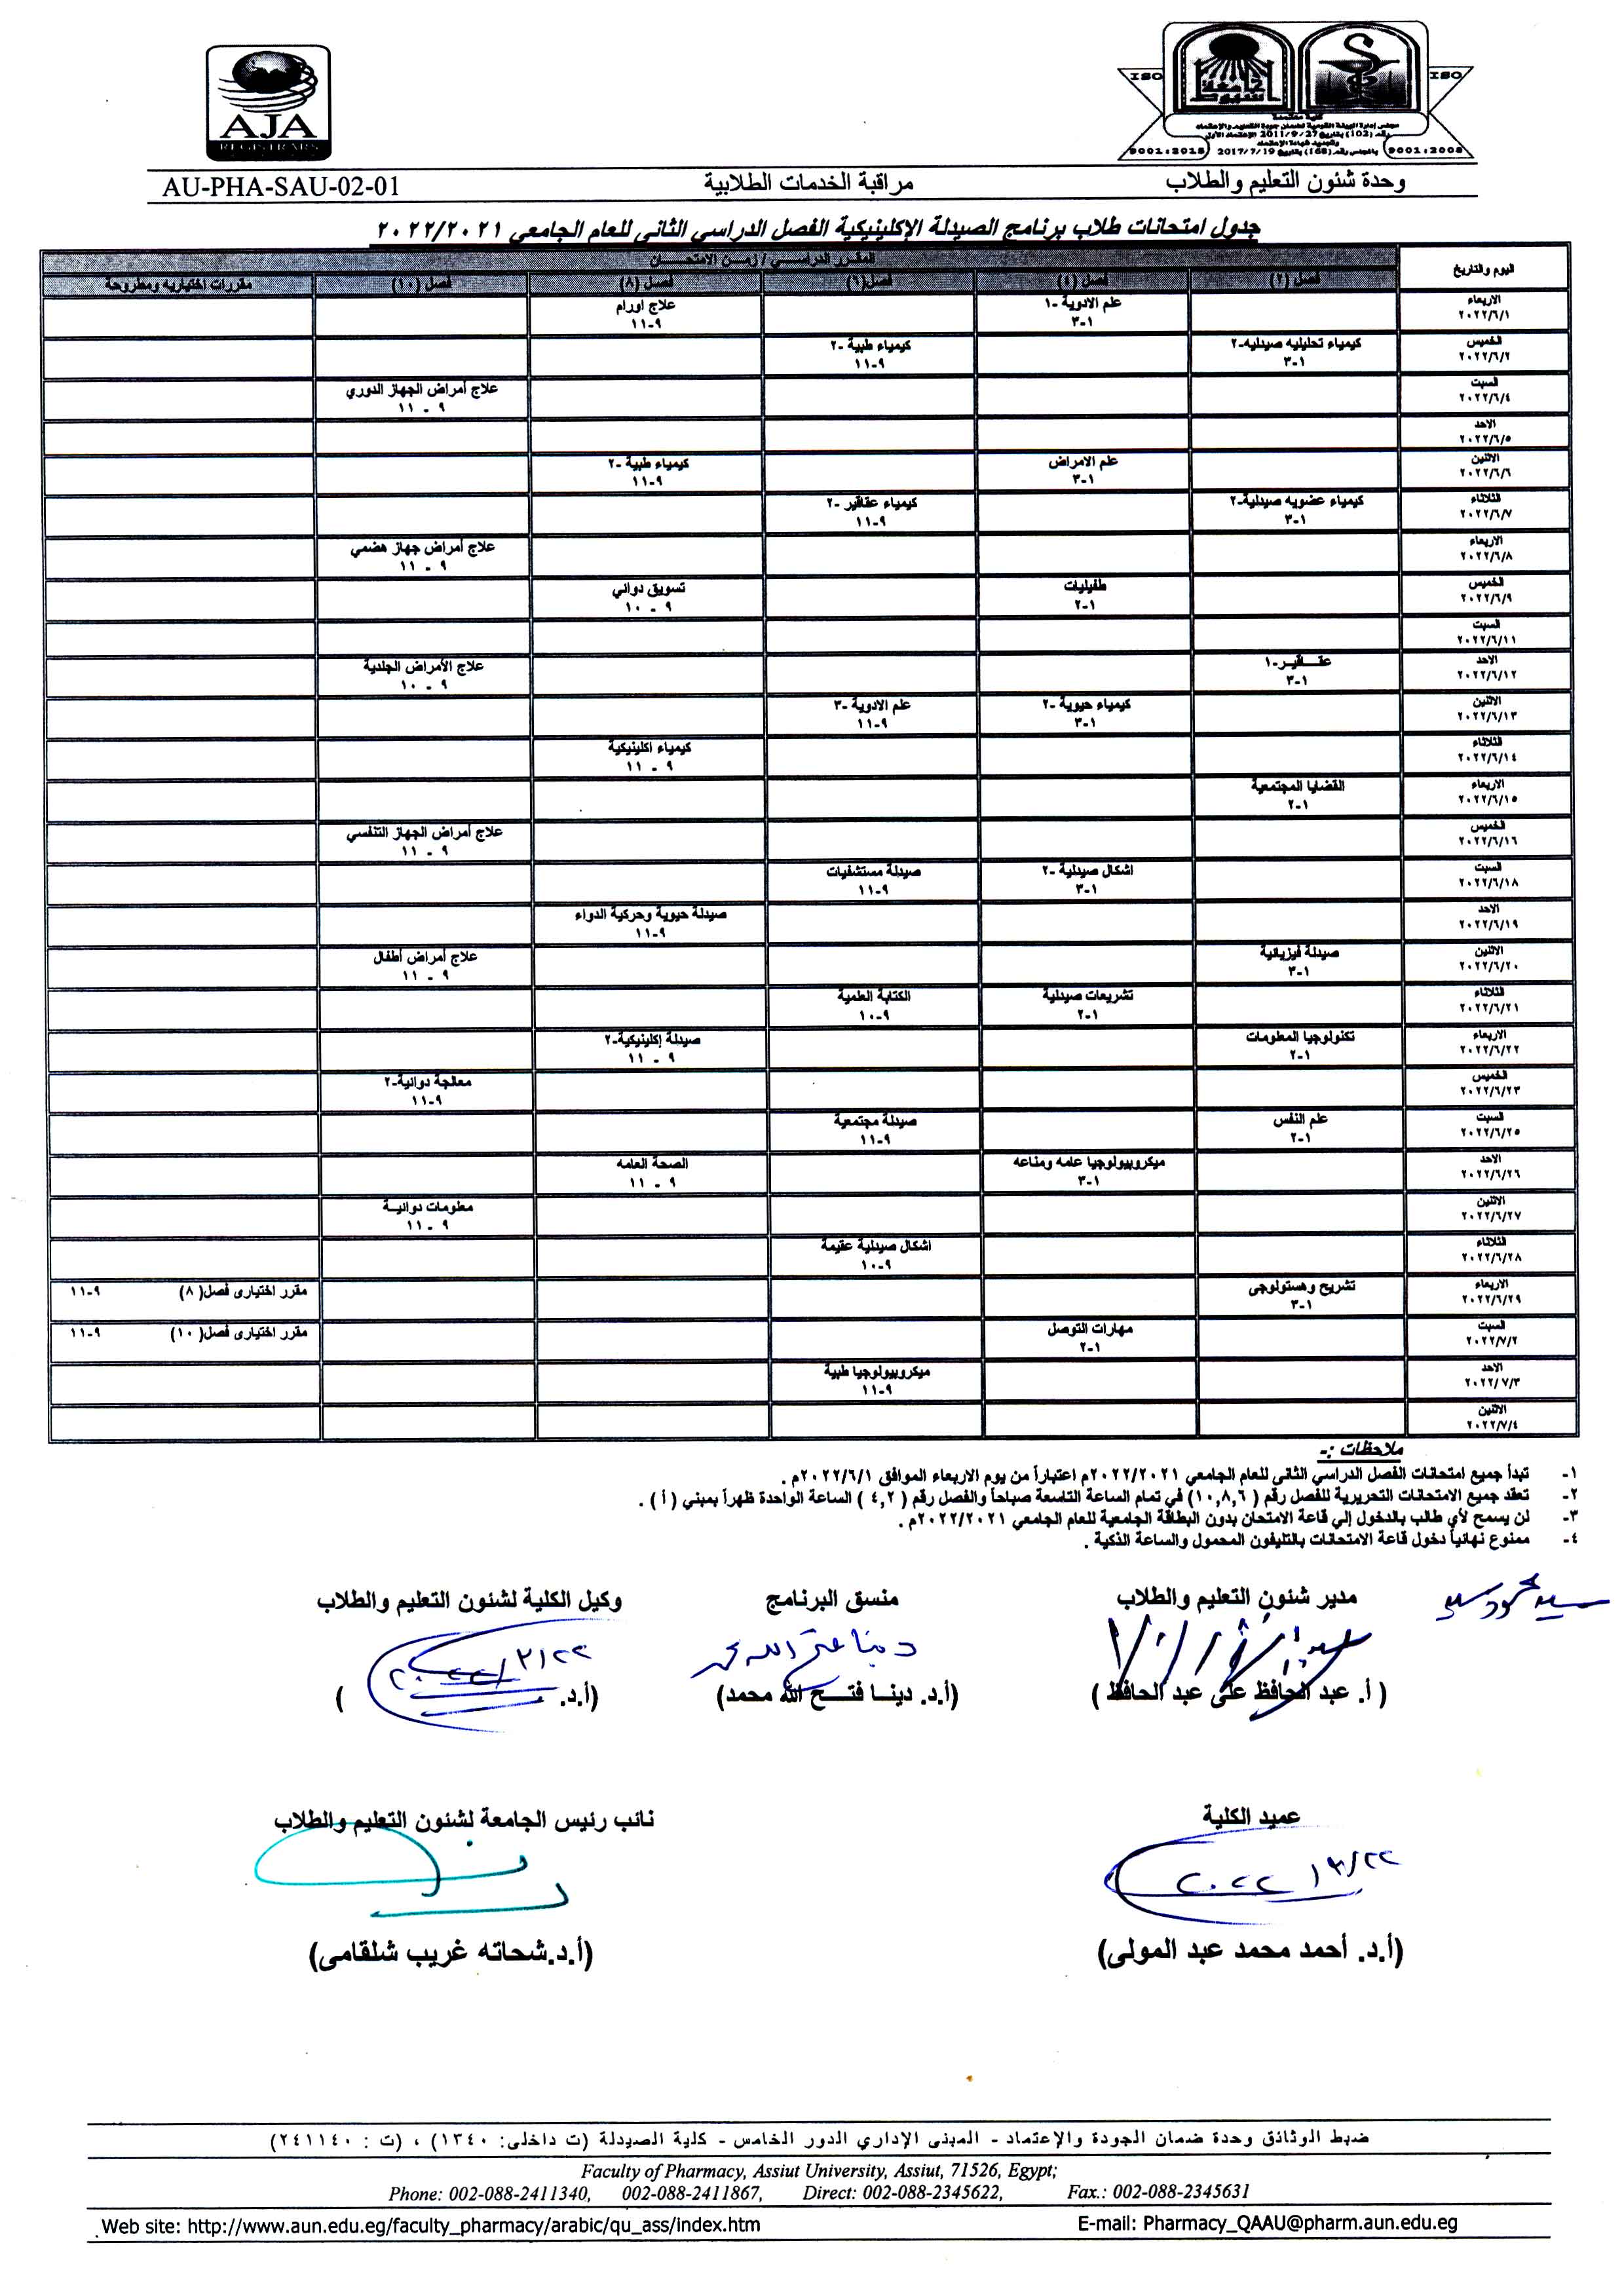 AJA
REGISTRARS
ISO
ISO
كلية معتمدة
مجلس إدارة الهيئة القومية لضمان جودة التعليم والإعتماد
رقم (102) بتاريخ 2011/9/27 الإعتماد الأول
وتجديد شهادة الإعتماد
بالمجلس رقم (168) بتاريخ 2017/7/19
9001:2015
9001:2008
وحدة شئون التعليم والطلاب
مراقبة الخدمات الطلابية
AU-PHA-SAU-02-01
جدول امتحانات طلاب برنامج الصيدلة الإكلينيكية الفصل الدراسي الثاني للعام الجامعي ٢٠٢٢/٢٠٢١
اليوم والتاريخ
المقرر الدراسي / زمن الامتحان
فصل (٢) فصل (٤) فصل(٦) فصل (٨) فصل (١٠) مقررات اختياريه ومطروحة
الاربعاء علم الادوية -١ علاج اورام
٢٠٢٢/٦/١ ٣-١ ١١-٩
الخميس كيمياء تحليليه صيدليه-٢ كيمياء طبية -٢
٢٠٢٢/٦/٢ ٣-١ ١١-٩
السبت علاج أمراض الجهاز الدوري
٢٠٢٢/٦/٤ ٩ - ١١
الاحد
٢٠٢٢/٦/٥
الاثنين علم الامراض كيمياء طبية -٢
٢٠٢٢/٦/٦ ٣-١ ١١-٩
الثلاثاء كيمياء عضويه صيدلية-٢ كيمياء عقاقير -٢
٢٠٢٢/٦/٧ ٣-١ ١١-٩
الاربعاء علاج أمراض جهاز هضمي
٢٠٢٢/٦/٨ ٩ - ١١
الخميس طفيليات تسويق دوائي
٢٠٢٢/٦/٩ ٢-١ ٩ - ١٠
السبت
٢٠٢٢/٦/١١
الاحد عقـــاقيـر-١ علاج الأمراض الجلدية
٢٠٢٢/٦/١٢ ٣-١ ٩ - ١٠
الاثنين كيمياء حيوية -٢ علم الادوية -٣
٢٠٢٢/٦/١٣ ٣-١ ١١-٩
الثلاثاء كيمياء اكلينيكية
٢٠٢٢/٦/١٤ ٩ - ١١
الاربعاء القضايا المجتمعية
٢٠٢٢/٦/١٥ ٢-١
الخميس علاج أمراض الجهاز التنفسي
٢٠٢٢/٦/١٦ ٩ - ١١
السبت اشكال صيدلية -٢ صيدلة مستشفيات
٢٠٢٢/٦/١٨ ٣-١ ١١-٩
الاحد صيدلة حيوية وحركية الدواء
٢٠٢٢/٦/١٩ ١١-٩
الاثنين صيدلة فيزيائية علاج أمراض أطفال
٢٠٢٢/٦/٢٠ ٣-١ ٩ - ١١
الثلاثاء تشريعات صيدلية الكتابة العلمية
٢٠٢٢/٦/٢١ ٢-١ ١٠-٩
الاربعاء تكنولوجيا المعلومات صيدلة إكلينيكية-٢
٢٠٢٢/٦/٢٢ ٢-١ ٩ - ١١
الخميس معالجة دوائية-٢
٢٠٢٢/٦/٢٣ ١١-٩
السبت علم النفس صيدلة مجتمعية
٢٠٢٢/٦/٢٥ ٢-١ ١١-٩
الاحد ميكروبيولوجيا عامه ومناعه الصحة العامه
٢٠٢٢/٦/٢٦ ٣-١ ٩ - ١١
الاثنين معلومات دوائيــة
٢٠٢٢/٦/٢٧ ٩ - ١١
الثلاثاء اشكال صيدلية عقيمة
٢٠٢٢/٦/٢٨ ١٠-٩
الاربعاء تشريح وهستولوجى مقرر اختيارى فصل( ٨) ١١-٩
٢٠٢٢/٦/٢٩ ٣-١
السبت مهارات التوصل مقرر اختيارى فصل( ١٠) ١١-٩
٢٠٢٢/٧/٢ ٢-١
الاحد ميكروبيولوجيا طبية
٢٠٢٢/٧/٣ ١١-٩
الاثنين
٢٠٢٢/٧/٤
ملاحظات :-
١- تبدأ جميع امتحانات الفصل الدراسي الثاني للعام الجامعي ٢٠٢٢/٢٠٢١م اعتباراً من يوم الاربعاء الموافق ٢٠٢٢/٦/١م .
٢- تعقد جميع الامتحانات التحريرية للفصل رقم ( ١٠,٨,٦) في تمام الساعة التاسعة صباحاً والفصل رقم ( ٤,٢ ) الساعة الواحدة ظهراً بمبني ( أ ) .
٣- لن يسمح لأي طالب بالدخول إلي قاعة الامتحان بدون البطاقة الجامعية للعام الجامعي ٢٠٢٢/٢٠٢١م .
٤- ممنوع نهائياً دخول قاعة الامتحانات بالتليفون المحمول والساعة الذكية .
مدير شئون التعليم والطلاب منسق البرنامج وكيل الكلية لشئون التعليم والطلاب
٢٠٢٢/٣/٢٢
( أ. عبد الحافظ على عبد الحافظ ) (أ.د. دينــا فتـــح الله محمد) (أ.د. )
عميد الكلية نائب رئيس الجامعة لشئون التعليم والطلاب
٢٠٢٢/٣/٢٢
(أ.د. أحمد محمد عبد المولى) (أ.د.شحاته غريب شلقامى)
ضبط الوثائق وحدة ضمان الجودة والإعتماد - المبنى الإداري الدور الخامس - كلية الصيدلة (ت داخلى: ١٣٤٠) ، (ت : ٢٤١١٤٠)
Faculty of Pharmacy, Assiut University, Assiut, 71526, Egypt;
Phone: 002-088-2411340, 002-088-2411867, Direct: 002-088-2345622, Fax.: 002-088-2345631
Web site: http://www.aun.edu.eg/faculty_pharmacy/arabic/qu_ass/index.htm E-mail: Pharmacy_QAAU@pharm.aun.edu.eg